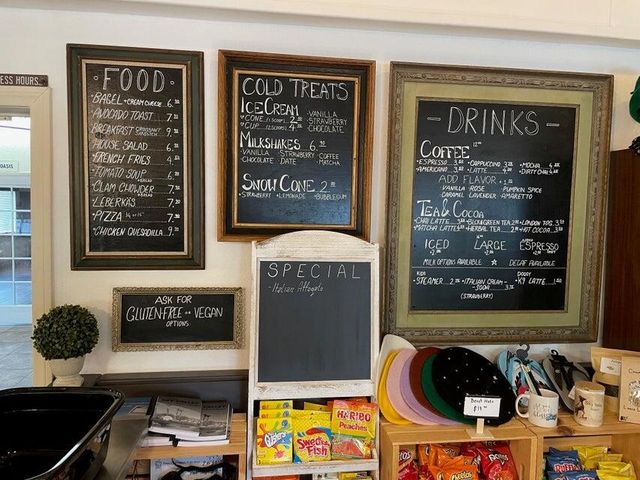 ESS HOURS...
FOOD
BAGEL + CREAM CHEESE 6.
AVOCADO TOAST 7.
BREAKFAST CROISSANT SANDWICH 9.
HOUSE SALAD 6.
FRENCH FRIES 4.
TOMATO SOUP 6.
CLAM CHOWDER 7.
LEBERKÄS 7.
PIZZA 7.
CHICKEN QUESADILLA 9.
COLD TREATS
ICE CREAM
CONE (1 SCOOP) 2.
CUP 4.
VANILLA
STRAWBERRY
CHOCOLATE
MILKSHAKES 6.
VANILLA STRAWBERRY COFFEE
CHOCOLATE DATE MATCHA
SNOW CONE 2.
STRAWBERRY LEMONADE BUBBLEGUM
DRINKS
COFFEE
ESPRESSO 3. CAPPUCCINO 3. MOCHA 4.
AMERICANO 3. LATTE 4. DIRTY CHAI 4.
ADD FLAVOR
VANILLA ROSE PUMPKIN SPICE
CARAMEL LAVENDER AMARETTO
TEA & COCOA
CHAI LATTE 3. BLK/GREEN TEA 2. LONDON FOG 3.
MATCHA LATTE HERBAL TEA 2. HOT COCOA 3.
ICED LARGE ESPRESSO
MILK OPTIONS AVAILABLE DECAF AVAILABLE
KIDS
STEAMER 2. ITALIAN CREAM SODA 3.
(STRAWBERRY)
DOGGY
K9 LATTE 1.
ASK FOR
GLUTEN-FREE OR VEGAN
OPTIONS
SPECIAL
- Italian Affogato
HARIBO
Peaches
SWEDISH
FISH